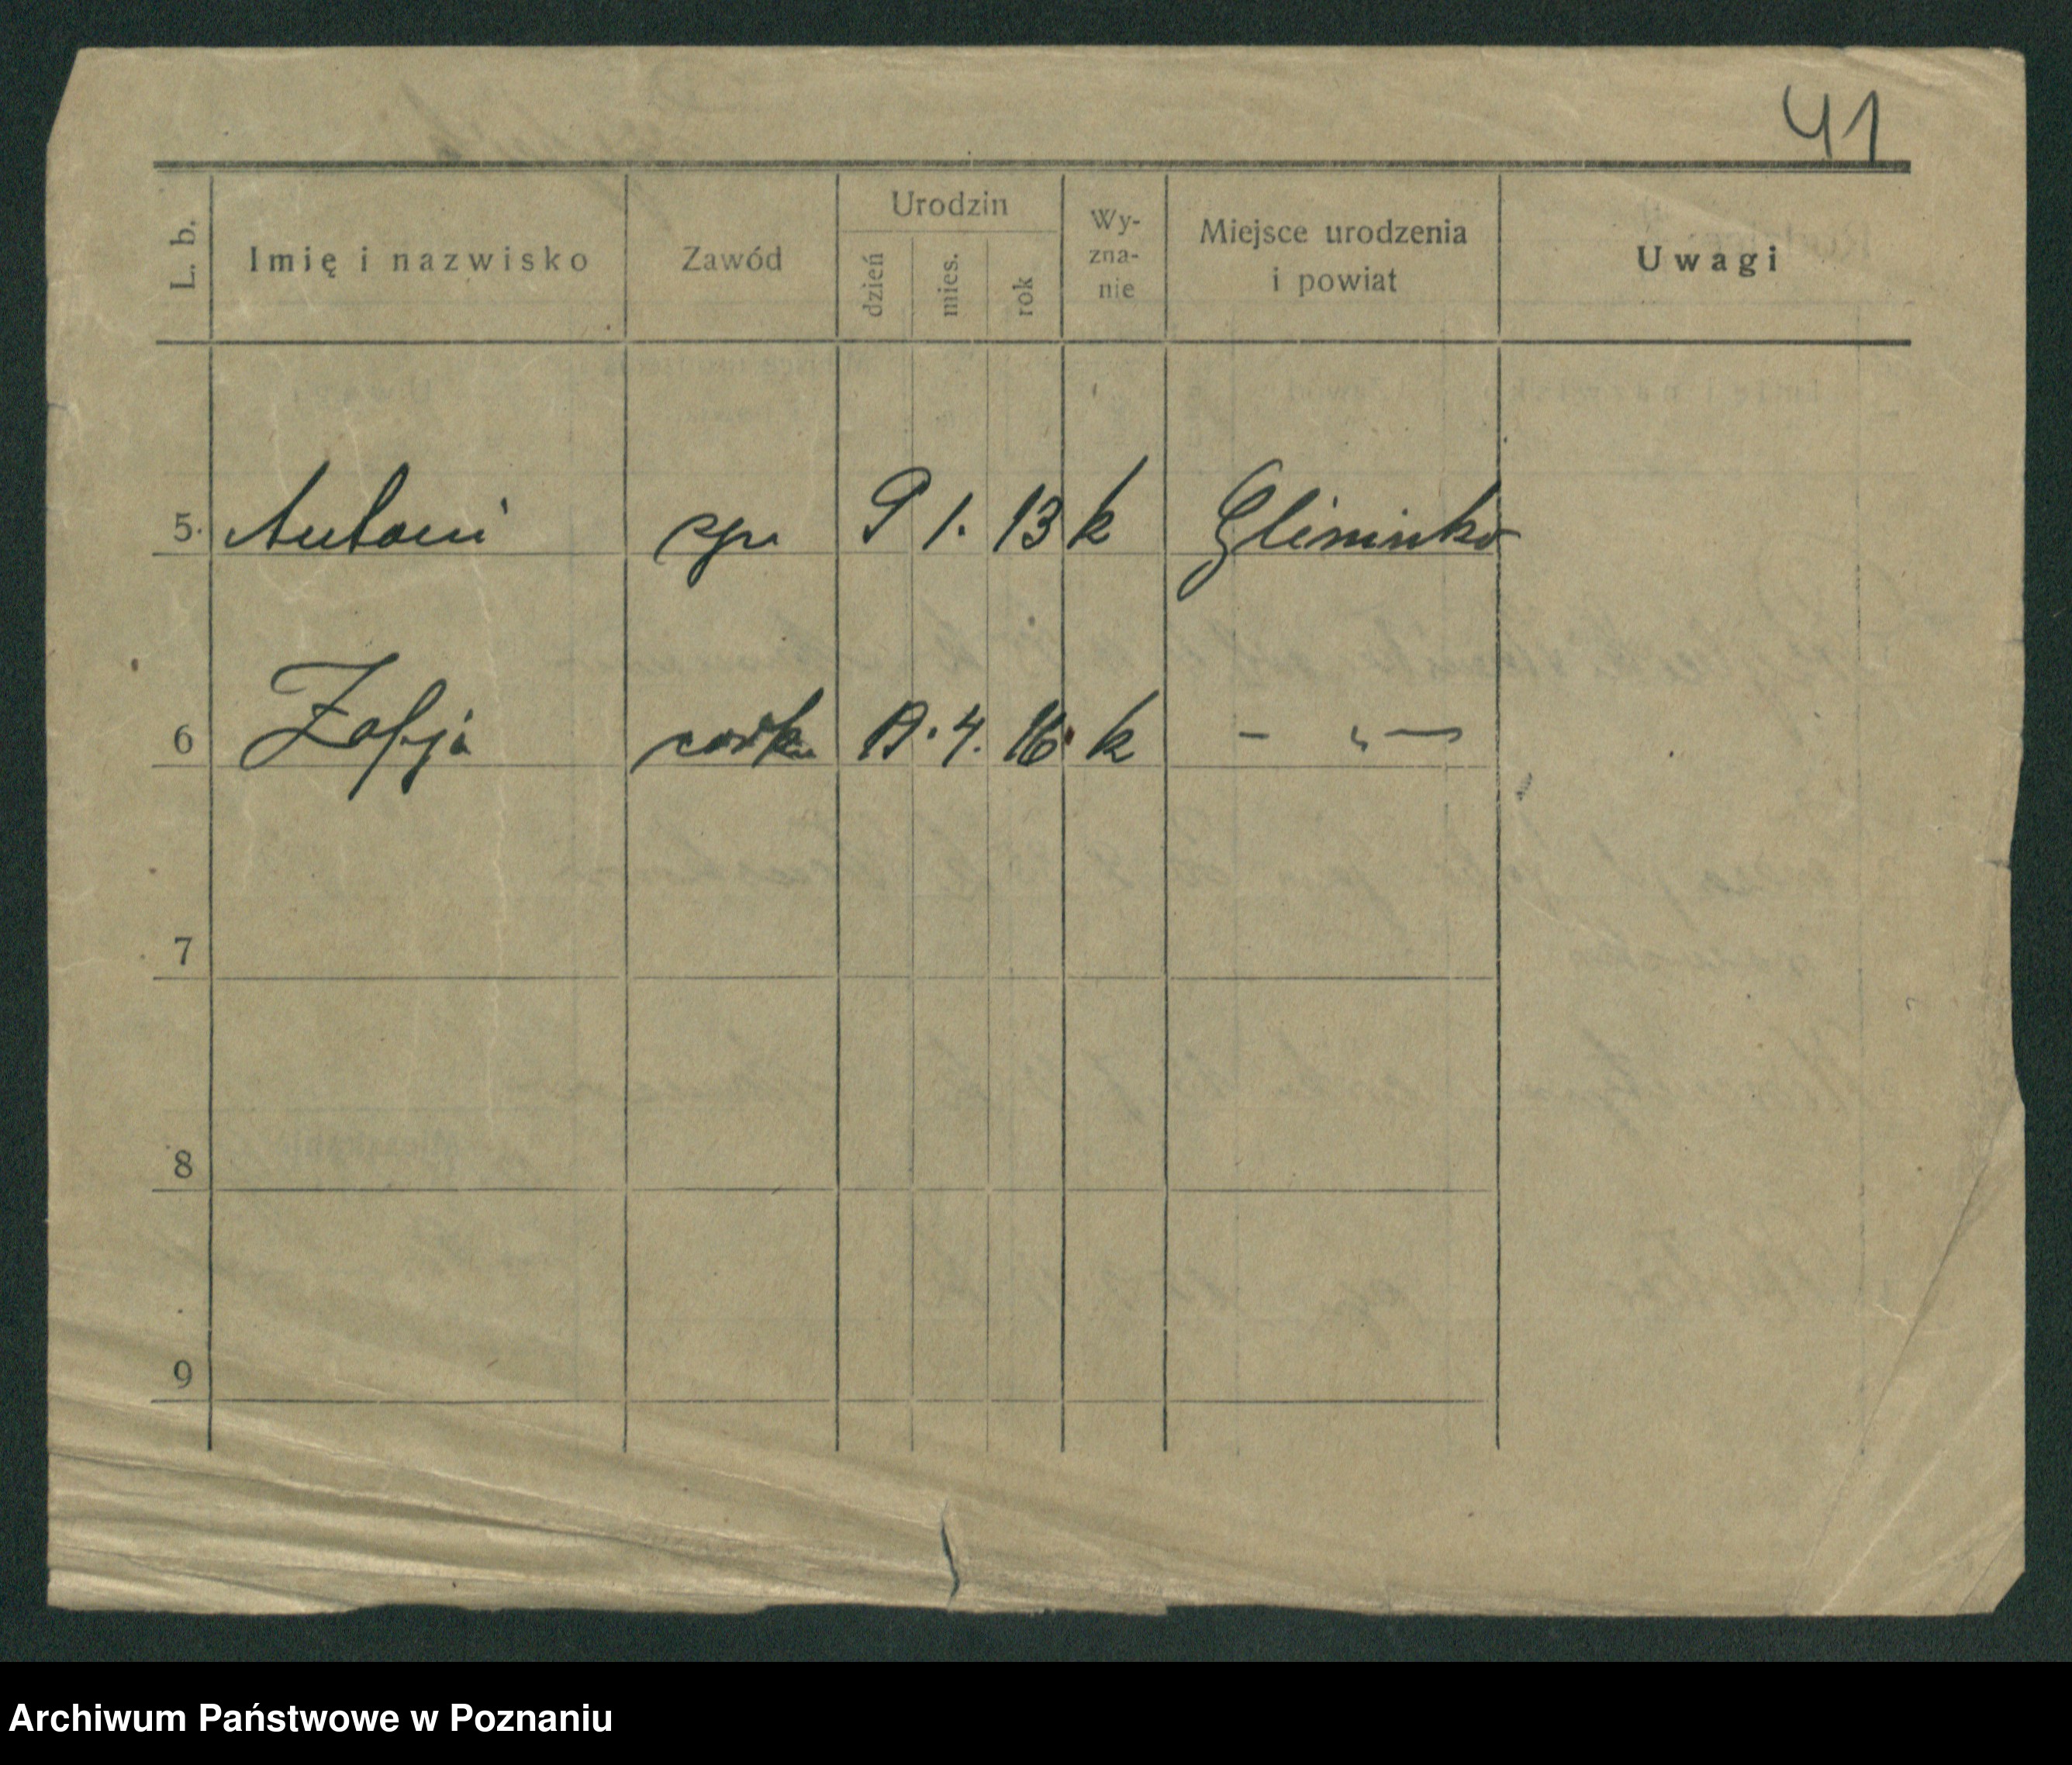 41
L. b.
Imię i nazwisko
Zawód
Urodzin
dzień
mies.
rok
Wy-
zna-
nie
Miejsce urodzenia
i powiat
Uwagi
5. Antoni syn 9 1. 13 k
6 Zofja córka 4. 16 k - „ -
7
8
9
Archiwum Państwowe w Poznaniu